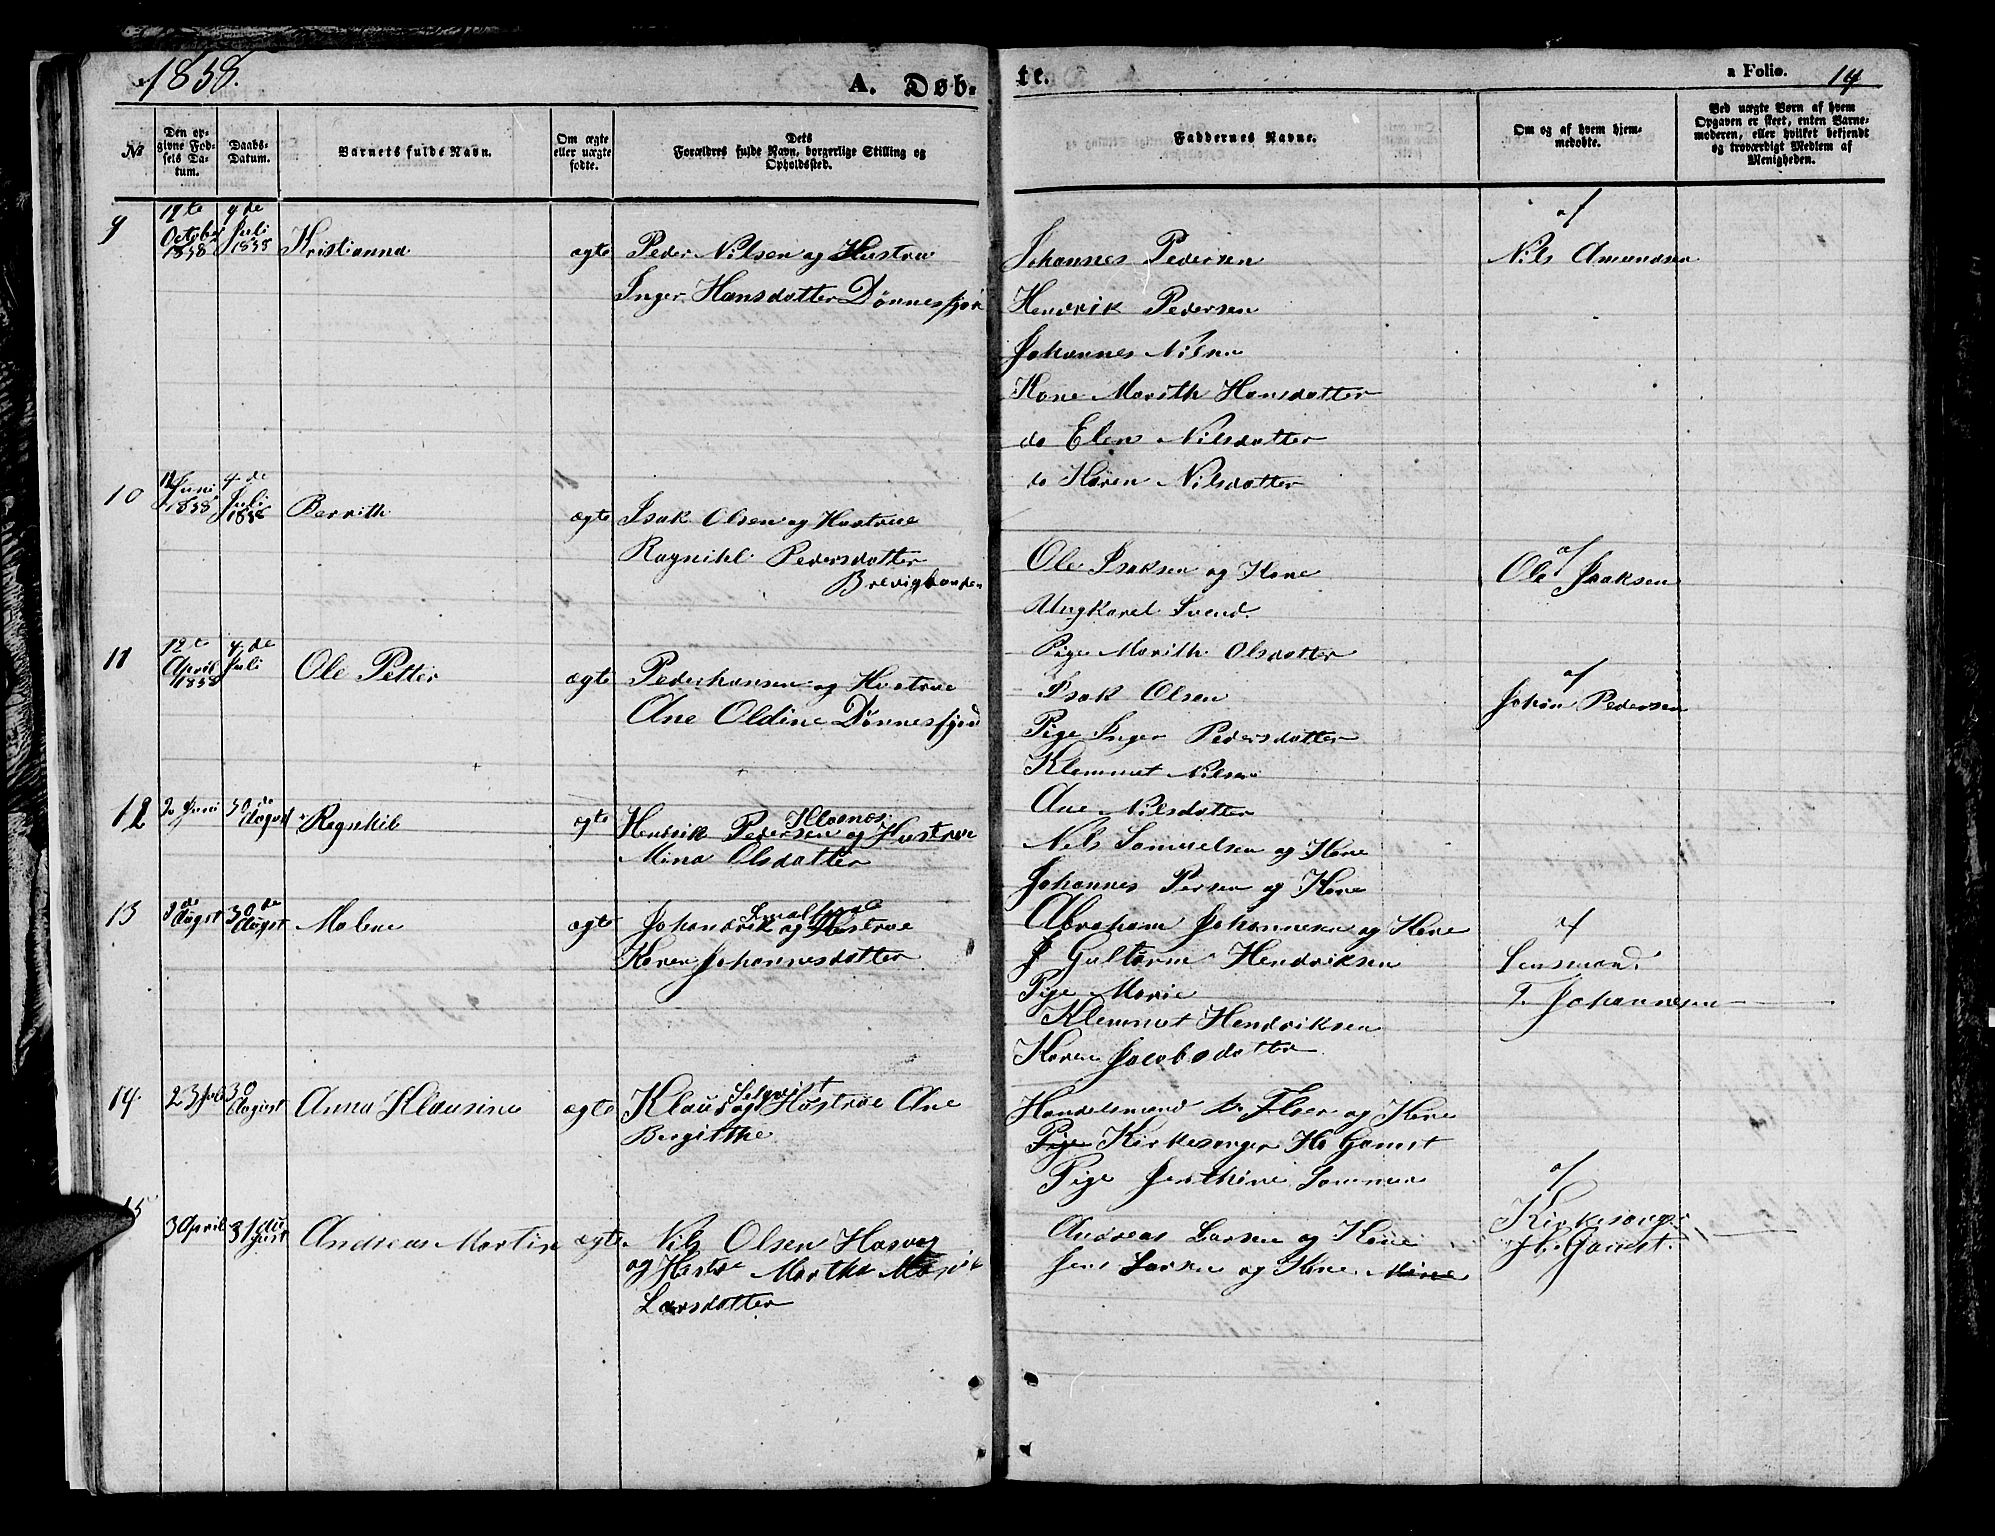 1858.
A. Døb-
te.
a Folio. 14
No
Den op-
givne Fød-
sels Da-
tum.
Daabs-
Datum.
Barnets fulde Navn.
Om ægte
eller uægte
fødte.
Dets
Forældres fulde Navn, borgerlige Stilling og
Opholdssted.
Faddernes Navne.
Om og af hvem hjem-
medøbte.
Ved uægte Børn af hvem
Opgaven er skeet, enten Barne-
moderen, eller hvilket bekjendt
og troværdigt Medlem af
Menigheden.
9
October
1858
4 de
Juli
1858
Kristianna
ægte
Peder Nilsen og Hustrue
Inger Hansdatter Dønnesfjor
Johannes Pedersen
Hendrik Pedersen
Johannes Nilsen
Kone Marith Hansdatter
do Elen Nilsdatter
do Karen Nilsdatter
af
Nils Amundsen
10
12
Juni
1858
4 de
Juli
1858
Berrith
ægte
Isak Olsen og Hustrue
Ragnihl Pedersdatter
Brevigbonden
Ole Isaksen og Kone
Ungkarel Svend.
Pige Marith Olsdatter
Isak Olsen
Pige Inger Pedersdatter
af
Ole Isaksen
11
12te
April
1858
4 de
Juli
Ole Petter
ægte
Pederhansen og Hustrue
Ane Oldine Dønnesfjord
Klemmet Nilsen
Ane Nilsdatter
Nils Samuelsen og Kone
Johannes Persen og Kone
af
Johan Pedersen
12
20 Juni
30 de
August
Regnkil
ægte
Hendrik Pedersen og Hustrue
Mina Olsdatter
Abraham Johannesen og Kone
Gultorm Hendriksen
Pige Marie
13
August
30 de
August
Malene
ægte
Johandrik og Hustrue
Karen Johannesdatter
Klemmet Hendriksen
Karen Jacobsdatter
af
Lensmand
T. Johannesen
14.
23 Juli
30
August
Anna Klausine
ægte
Klaus og Hustrue Ane
Bergitthe
Handelsmand og Kone
Pige Kirkesanger Gamst
Pige
15
3 April
31 Au
gust
Andreas Martin
ægte
Nils Olsen Hasvag
og Hustrue Martha Maria
Larsdatter
Andreas Larsen og Kone
Jens Larsen og Kone
af
Kirkesanger
H. Gamst.